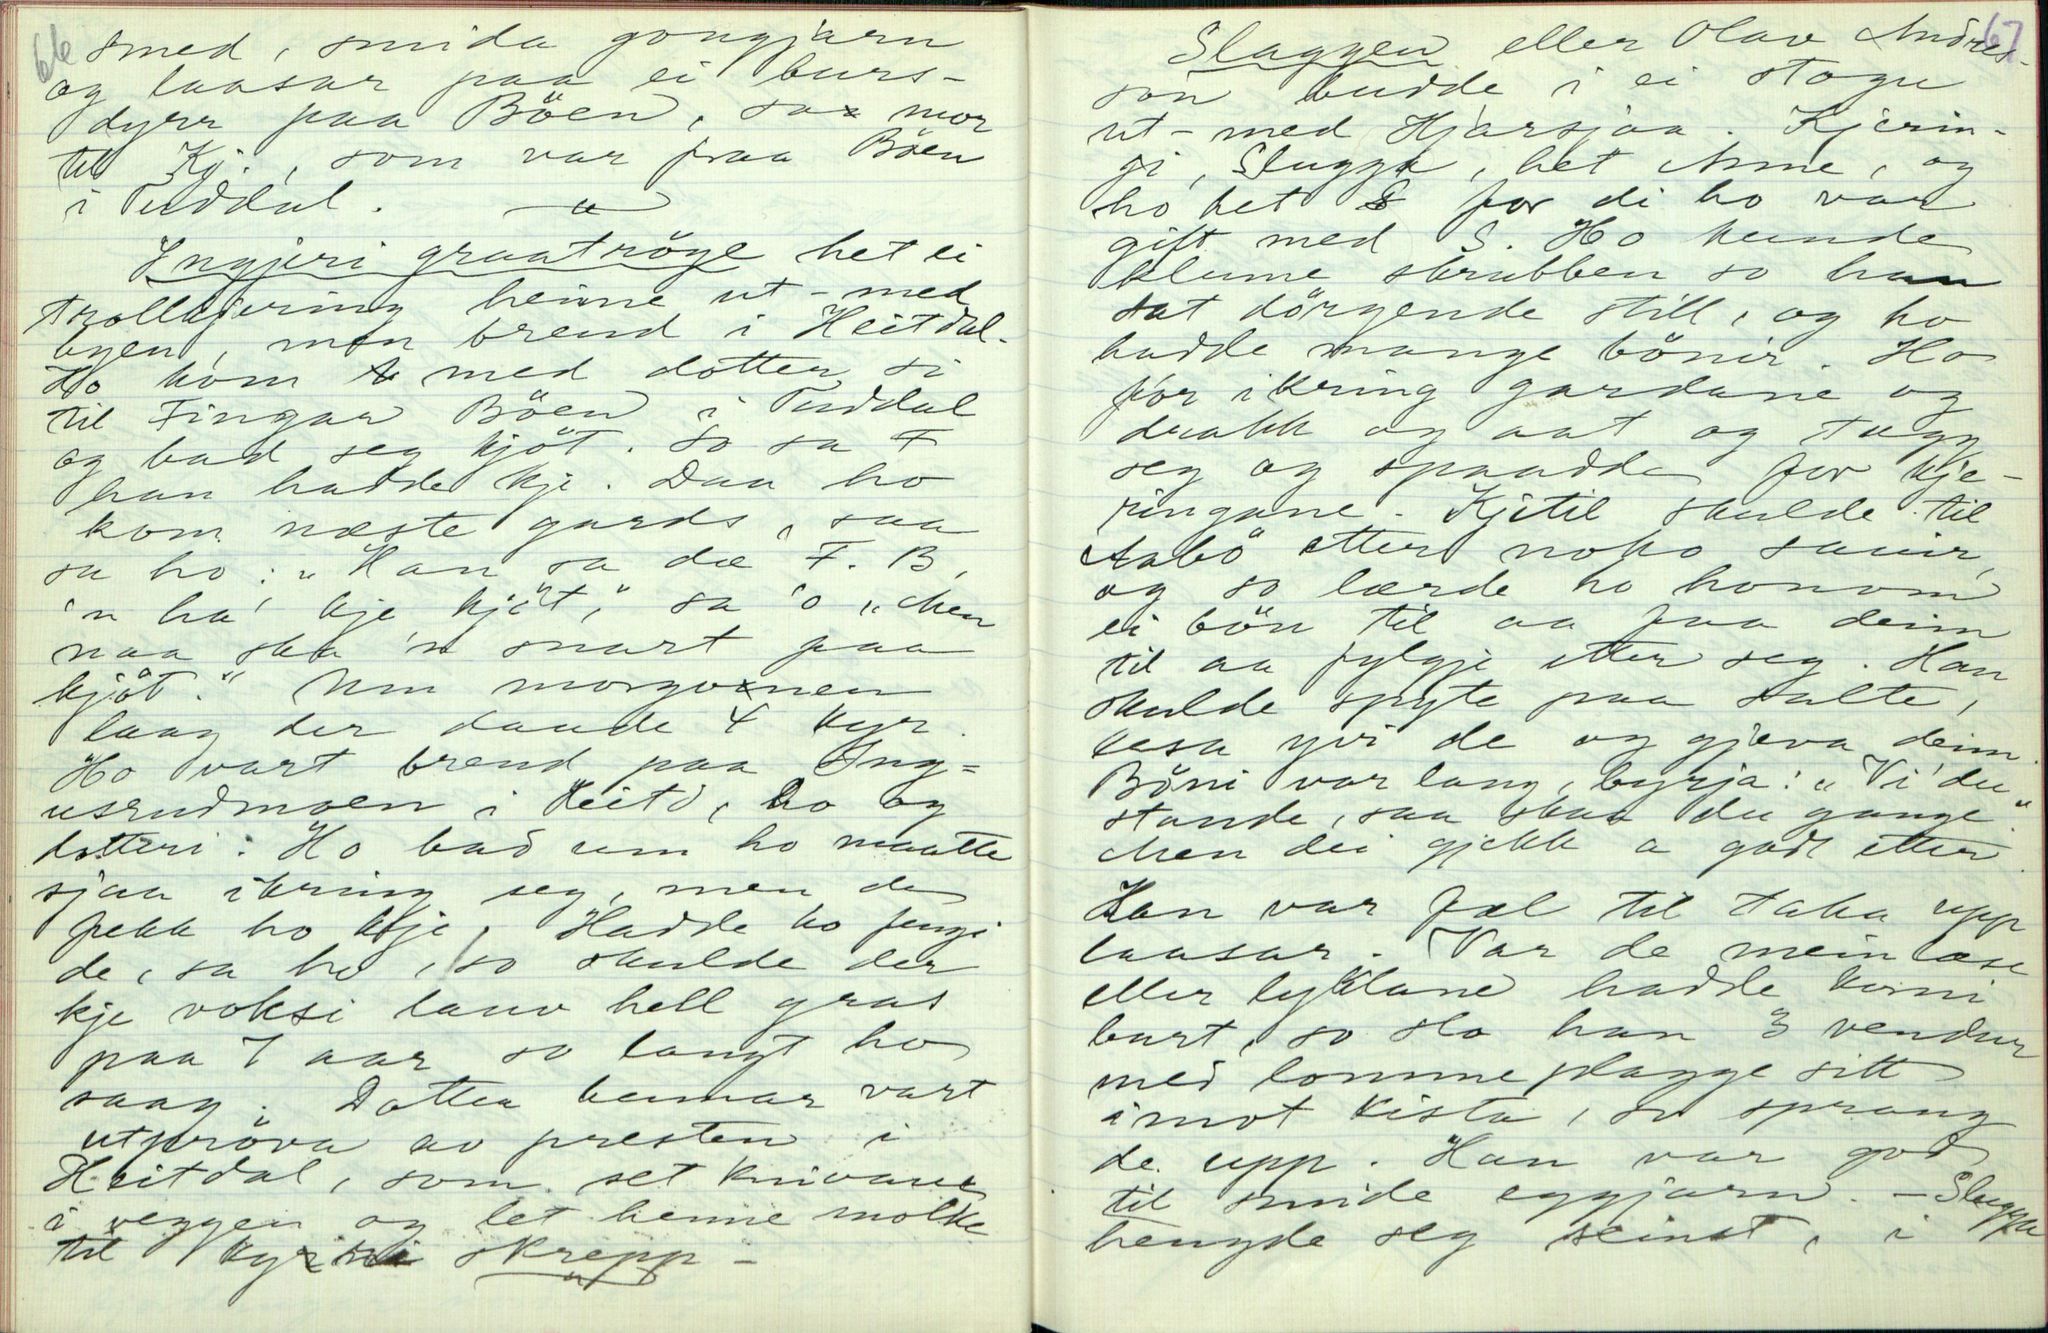 66
smed, smida gongjarn
og laasar paa ei burs-
dyrr paa Böen, sa mor
til Kj., som var fraa Böen
i Tuddal.
Ingjeri graatröge het ei
trollkjering heime ut-med
byen, men brend i Heitdal.
Ho kom med dotter si
til Fingar Böen i Tuddal
og bad seg kjöt. So sa F
han hadde kje. Daa ho
kom næste gards, saa
sa ho: "Han sa dæ F. B,
'n ha' kje kjöt," sa 'o "Men
naa ska 'n snart faa
kjöt." Um morgonen
laag der daude 4 kyr.
Ho vart brend paa Ing-
usrudmoen i Heitd, ho og
dotteri: Ho bad um ho maatte
sjaa ikring seg, men de
fekk ho kje. Hadde ho fengi
de, sa ho, so skulde der
kje voksi lauv hell gras
paa 7 aar so langt ho
saag. Dotter hennar vart
utpröva av presten i
Heitdal, som set knivane
i veggen og let henne molke
til kyri skrepp -
67
Slaggen eller Olav Andres-
son budde i ei stogu
ut-med Hjarsjaa. Kjerin-
gi, Sluggk, het Anne, og
ho het S for di ho var
gift med S. Ho kunde
klume skrubben so han
sat dörgende still, og ho
hadde mange böner. Ho
for ikring gardane og
drakk og aat og tugg
seg og spaadde for kje-
ringane. Kjetil skulde til
Aabö etter noko sauir,
og so lærde ho honom
ei bön til aa faa deim
til aa fylgje etter seg. Han
skulde spyte paa salte,
lesa yvi de og gjeva deim.
Böni var lang, byrja: "Vi' du
stande, saa skaa du gange."
Men dei gjekk a godt etter.
Han var fæl til taka upp
laasar. Var de mein læse
eller lyklane hadde komi
burt, so slo han 3 vendur
med lommeplagge sitt
imot kista, so sprang
de upp. Han var god
til smide eggjarn. - Slugga
hengde seg seinst, i